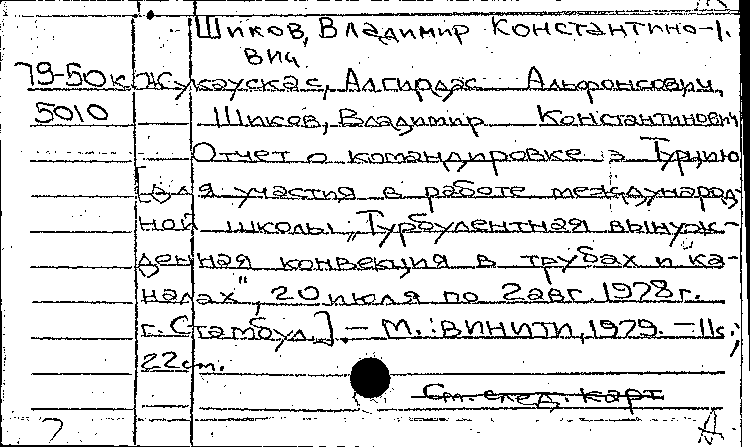 Шиков, Владимир Константино-
вич
79-50к Жукаускас, Алгирдас Альфонсович,
5010 Шиков, Владимир Константинович
Отчет о командировке в Турцию
[для участия в работе международ-
ной школы „Турбулентная вынуж-
денная конвекция в трубах и ка-
налах", 20 июля по 2 авг. 1978 г.
г. Стамбул]. – М.: ВИНИТИ, 1979. – 11с.;
22см.
См. след. карт